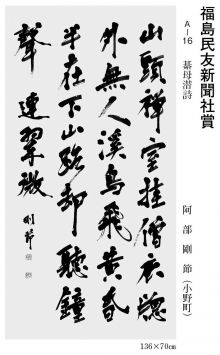 福島民友新聞社賞
A-16 綦母潜詩
阿部剛節(小野町)
山頭禅室挂僧衣窓
外無人溪鳥飛黄昏
半在下山路却聴鐘
聲連翠微 剛節
136×70cm